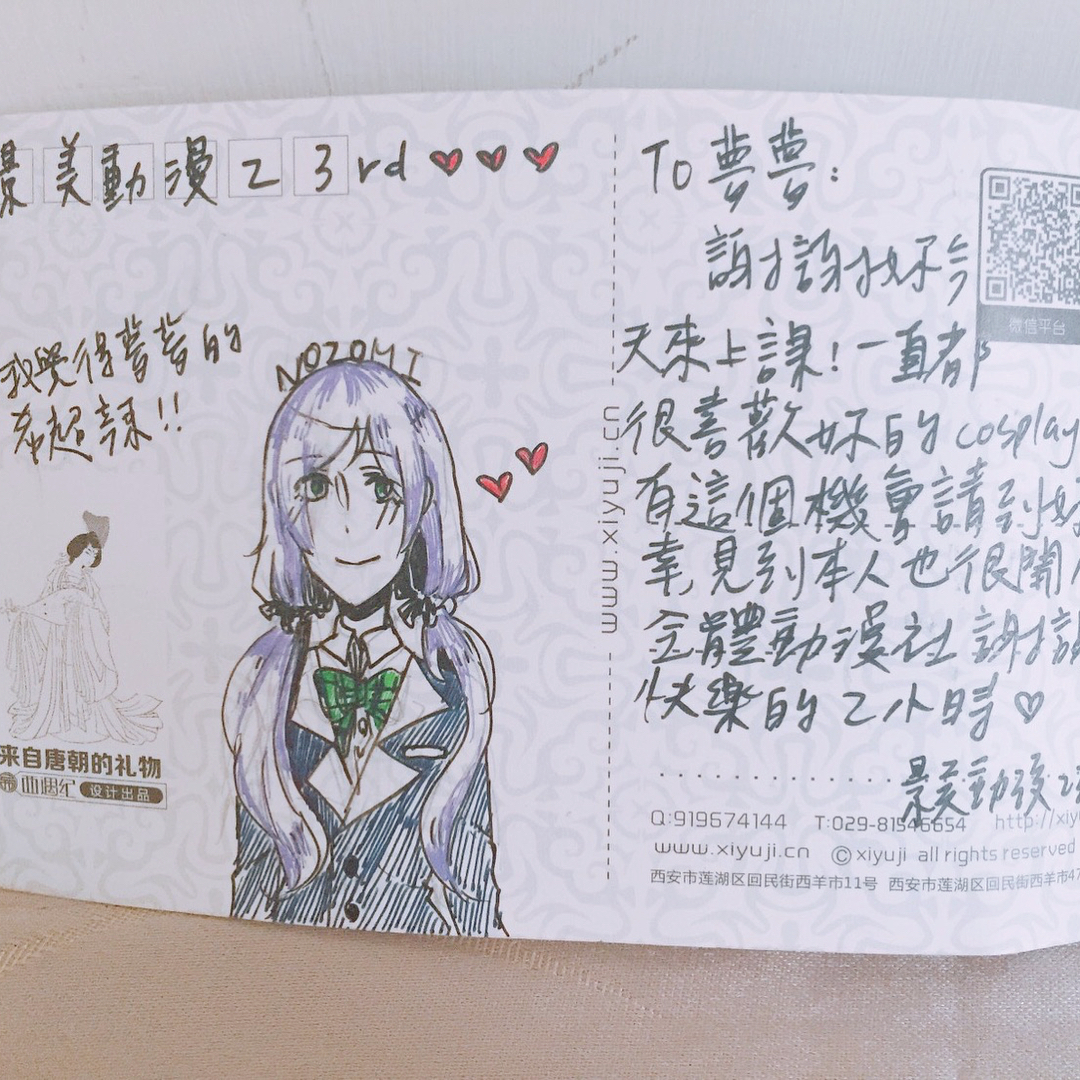 景美動漫23rd
我覺得夢夢的
希超辣!!
NOZOMI
来自唐朝的礼物
设计出品
www.xiyuji.cn
To 夢夢:
謝謝妳今
天來上課!一直都
很喜歡妳的cosplay
有這個機會請到妳
幸,見到本人也很開
全體動漫社 謝謝
快樂的2小時♡
景美動漫23
微信平台
Q:919674144 T:029-81546654 http://xiy
www.xiyuji.cn ©xiyuji all rights reserved
西安市莲湖区回民街西羊市11号 西安市莲湖区回民街西羊市47